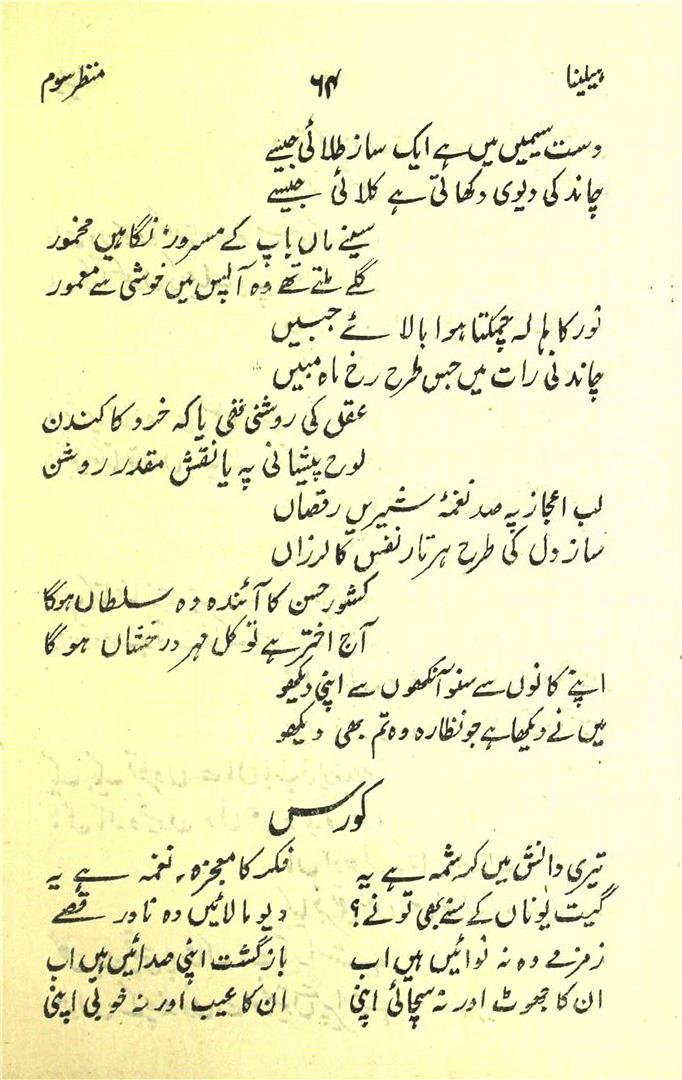 ہیلینا ۶۴ منظر سوم
دست سیمیں میں ہے ایک ساز طلائی جیسے
چاند کی دیوی دکھاتی ہے کلائی جیسے
سینے ماں باپ کے مسرور، نگاہیں مخمور
گلے ملتے تھے وہ آپس میں خوشی سے معمور
نور کا ہالہ چمکتا ہوا بالائے جبیں
چاندنی رات میں جس طرح رخ ماہ مبیں
عقل کی روشنی تھی یا کہ خرد کا کندن
لوح پیشانی پہ یا نقش مقدر روشن
لب اعجاز پہ صد نغمۂ شیریں رقصاں
ساز دل کی طرح ہر تار نفس کا لرزاں
کشور حسن کا آئندہ وہ سلطاں ہوگا
آج اختر ہے تو کل مہر درخشاں ہو گا
اپنے کانوں سے سنو آنکھوں سے اپنی دیکھو
میں نے دیکھا ہے جو نظارہ وہ تم بھی دیکھو
کورس
تیری دانش میں کرشمہ ہے یہ فکر کا معجزہ، نغمہ ہے یہ
گیت یوناں کے سنے بھی تونے؟ دیومالائیں وہ نادر قصے
زمزمے وہ نہ نوائیں ہیں اب بازگشت اپنی صدائیں ہیں اب
ان کا جھوٹ اور نہ سچائی اپنی ان کا عیب اور نہ خوبی اپنی